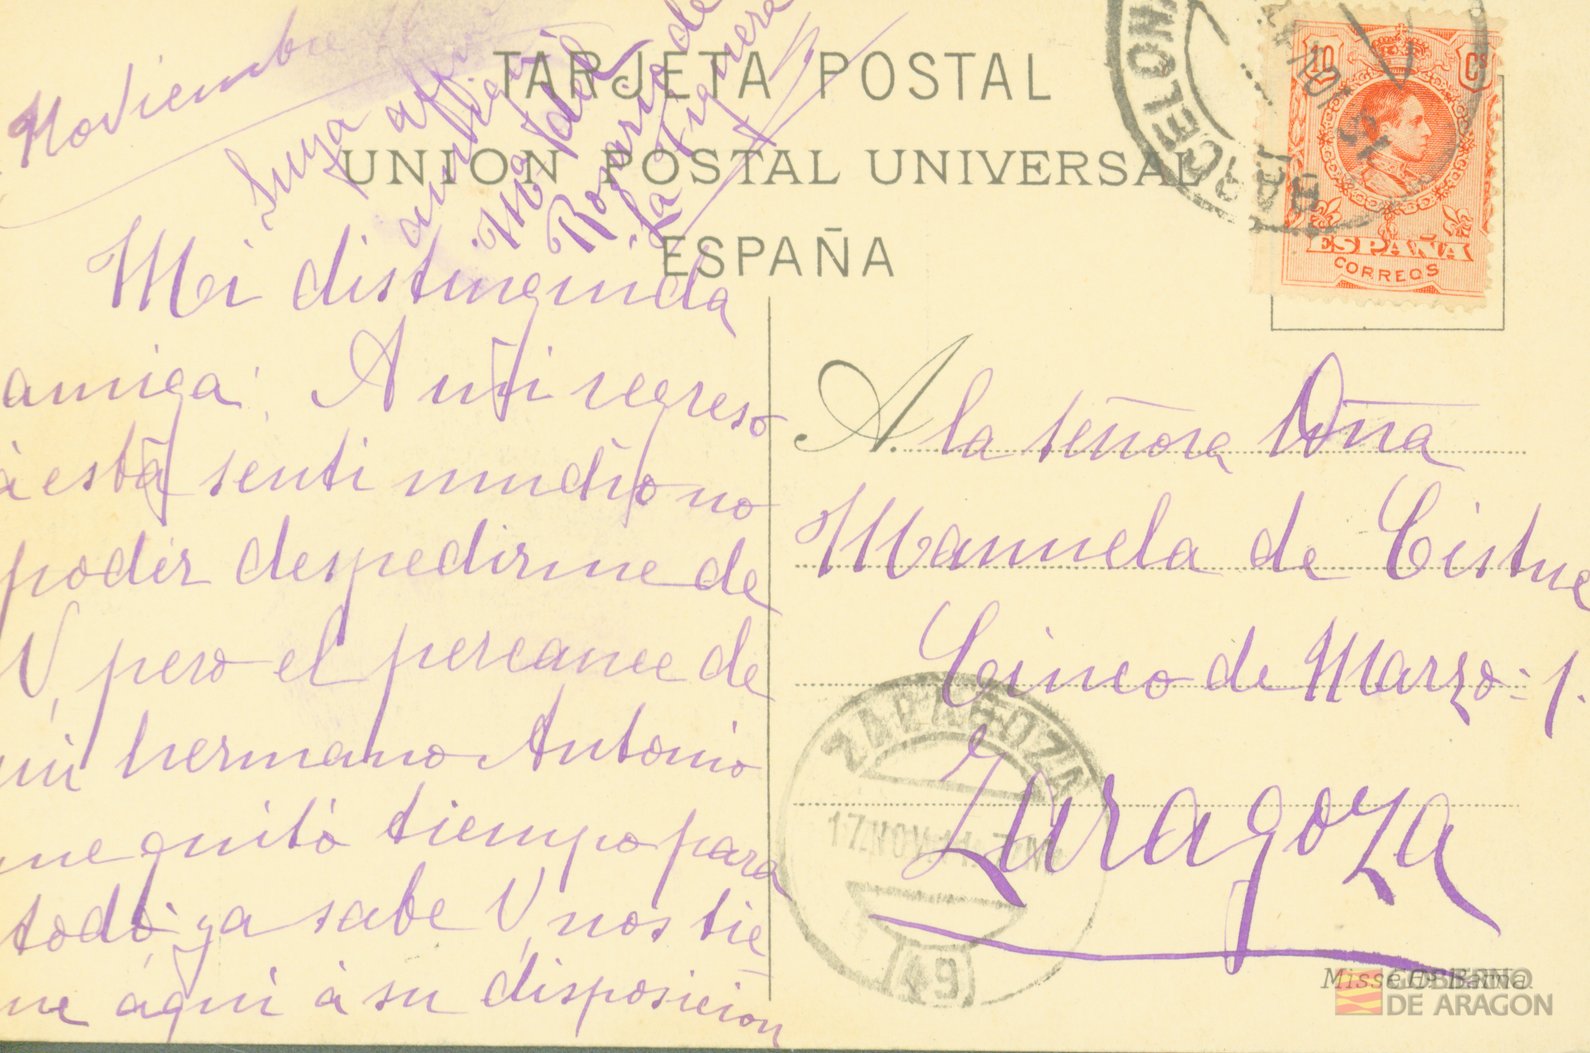 TARJETA POSTAL
UNION POSTAL UNIVERSAL
ESPAÑA
BARCELONA
10 Cs
ESPAÑA
CORREOS
Noviembre
Mi distinguida
amiga: A mi regreso
á ésta senti mucho no
poder despedirme de
V, pero el percance de
mi hermano Antonio
me quitó tiempo para
todo: ya sabe V, nos tie-
ne aquí á su disposicion
Suya affma
amiga
Ma del
Rosario de
la Figuera
A. la señora Doña
Manuela de Cistue
Cinco de Marzo-1.
Zaragoza
ZARAGOZA
17 NOV 11
(49)
GOBIERNO
DE ARAGON